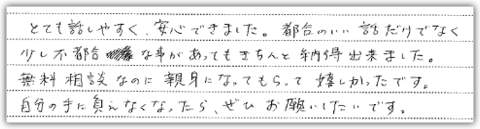 とても話しやすく、安心できました。都合のいい話だけでなく
少し不都合な事があってもきちんと納得出来ました。
無料相談なのに親身になってもらって嬉しかったです。
自分の手に負えなくなったら、ぜひお願いしたいです。